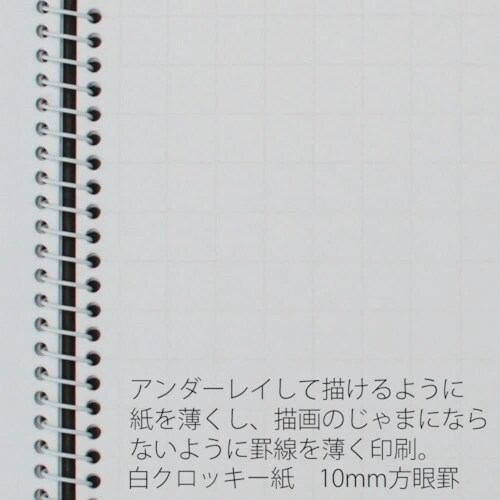 アンダーレイして描けるように
紙を薄くし、描画のじゃまになら
ないように罫線を薄く印刷。
白クロッキー紙　10mm方眼罫